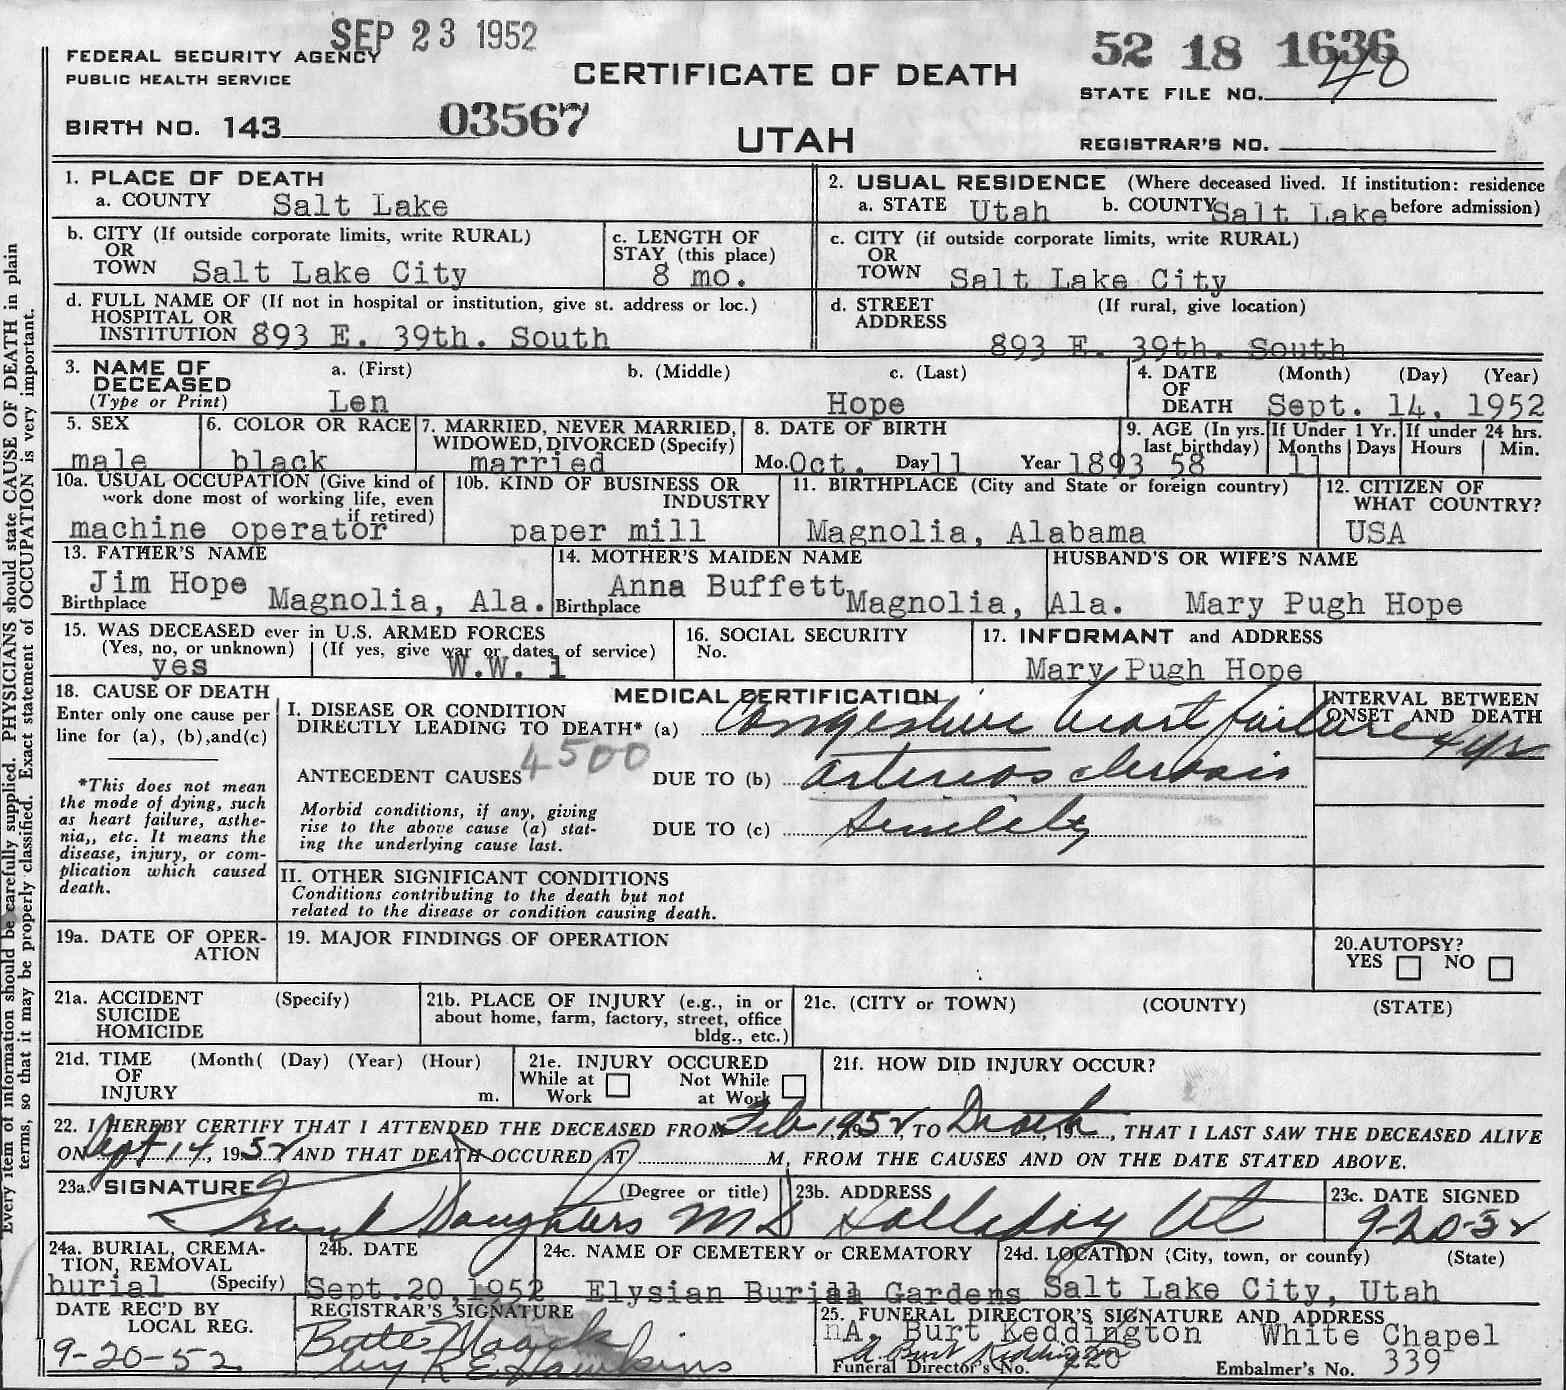 SEP 23 1952
FEDERAL SECURITY AGENCY
PUBLIC HEALTH SERVICE
CERTIFICATE OF DEATH
52 18 1636
40
STATE FILE NO.
BIRTH NO. 143 03567
UTAH
REGISTRAR'S NO.
1. PLACE OF DEATH
a. COUNTY Salt Lake
2. USUAL RESIDENCE (Where deceased lived. If institution: residence
a. STATE Utah b. COUNTY Salt Lake before admission)
b. CITY (If outside corporate limits, write RURAL)
OR
TOWN Salt Lake City
c. LENGTH OF
STAY (this place)
8 mo.
c. CITY (if outside corporate limits, write RURAL)
OR
TOWN Salt Lake City
d. FULL NAME OF (If not in hospital or institution, give st. address or loc.)
HOSPITAL OR
INSTITUTION 893 E. 39th. South
d. STREET (If rural, give location)
ADDRESS
893 E. 39th. South
3. NAME OF a. (First) b. (Middle) c. (Last)
DECEASED
(Type or Print) Len Hope
4. DATE (Month) (Day) (Year)
OF
DEATH Sept. 14, 1952
5. SEX
male
6. COLOR OR RACE
black
7. MARRIED, NEVER MARRIED,
WIDOWED, DIVORCED (Specify)
married
8. DATE OF BIRTH
Mo. Oct. Day 11 Year 1893
9. AGE (In yrs. last birthday)
58
If Under 1 Yr.
Months Days
11
If under 24 hrs.
Hours Min.
10a. USUAL OCCUPATION (Give kind of
work done most of working life, even
if retired)
machine operator
10b. KIND OF BUSINESS OR
INDUSTRY
paper mill
11. BIRTHPLACE (City and State or foreign country)
Magnolia, Alabama
12. CITIZEN OF
WHAT COUNTRY?
USA
13. FATHER'S NAME
Jim Hope
Birthplace Magnolia, Ala.
14. MOTHER'S MAIDEN NAME
Anna Buffett
Birthplace Magnolia, Ala.
HUSBAND'S OR WIFE'S NAME
Mary Pugh Hope
15. WAS DECEASED ever in U.S. ARMED FORCES
(Yes, no, or unknown) (If yes, give war or dates of service)
yes W.W. 1
16. SOCIAL SECURITY
No.
17. INFORMANT and ADDRESS
Mary Pugh Hope
18. CAUSE OF DEATH
Enter only one cause per
line for (a), (b),and(c)
*This does not mean
the mode of dying, such
as heart failure, asthe-
nia,, etc. It means the
disease, injury, or com-
plication which caused
death.
MEDICAL CERTIFICATION
I. DISEASE OR CONDITION
DIRECTLY LEADING TO DEATH* (a) Congestive heart failure
INTERVAL BETWEEN
ONSET AND DEATH
4 yr
4500
ANTECEDENT CAUSES DUE TO (b) arteriosclerosis
Morbid conditions, if any, giving
rise to the above cause (a) stat-
ing the underlying cause last.
DUE TO (c) Senility
II. OTHER SIGNIFICANT CONDITIONS
Conditions contributing to the death but not
related to the disease or condition causing death.
19a. DATE OF OPER-
ATION
19. MAJOR FINDINGS OF OPERATION
20. AUTOPSY?
YES NO
21a. ACCIDENT (Specify)
SUICIDE
HOMICIDE
21b. PLACE OF INJURY (e.g., in or
about home, farm, factory, street, office
bldg., etc.)
21c. (CITY or TOWN) (COUNTY) (STATE)
21d. TIME (Month( (Day) (Year) (Hour)
OF
INJURY m.
21e. INJURY OCCURED
While at Work Not While at Work
21f. HOW DID INJURY OCCUR?
22. I HEREBY CERTIFY THAT I ATTENDED THE DECEASED FROM Feb 1952, TO Death, 19, THAT I LAST SAW THE DECEASED ALIVE
ON Sept 14, 1952 AND THAT DEATH OCCURED AT M, FROM THE CAUSES AND ON THE DATE STATED ABOVE.
23a. SIGNATURE (Degree or title)
Frank Daughters MD
23b. ADDRESS
Holladay Ut
23c. DATE SIGNED
9-20-52
24a. BURIAL, CREMA-
TION, REMOVAL
burial (Specify)
24b. DATE
Sept. 20, 1952
24c. NAME OF CEMETERY or CREMATORY
Elysian Burial Gardens
24d. LOCATION (City, town, or county) (State)
Salt Lake City, Utah
DATE REC'D BY
LOCAL REG.
9-20-52
REGISTRAR'S SIGNATURE
by R E Hawkins
25. FUNERAL DIRECTOR'S SIGNATURE AND ADDRESS
A. Burt Keddington White Chapel
A. Burt Keddington
Funeral Director's No. 220 Embalmer's No. 339
Every item of information should be carefully supplied. PHYSICIANS should state CAUSE OF DEATH in plain
terms, so that it may be properly classified. Exact statement of OCCUPATION is very important.